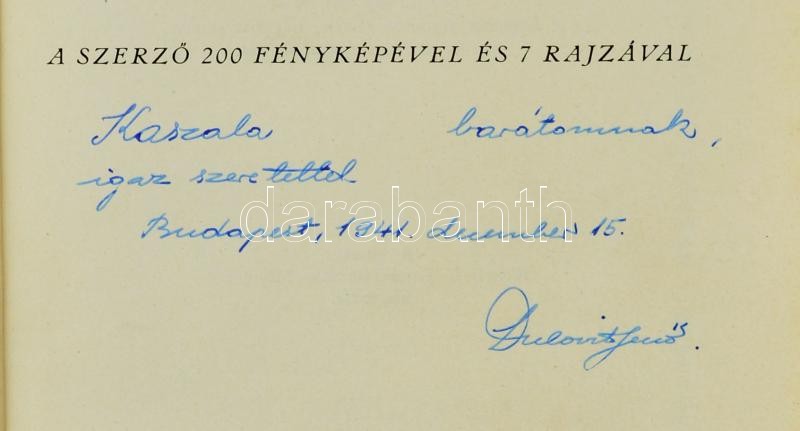 A SZERZŐ 200 FÉNYKÉPÉVEL ÉS 7 RAJZÁVAL
Kaszala barátomnak,
igaz szeretettel
darabanth
Budapest, 1941. december 15.
Dulovits Jenő.